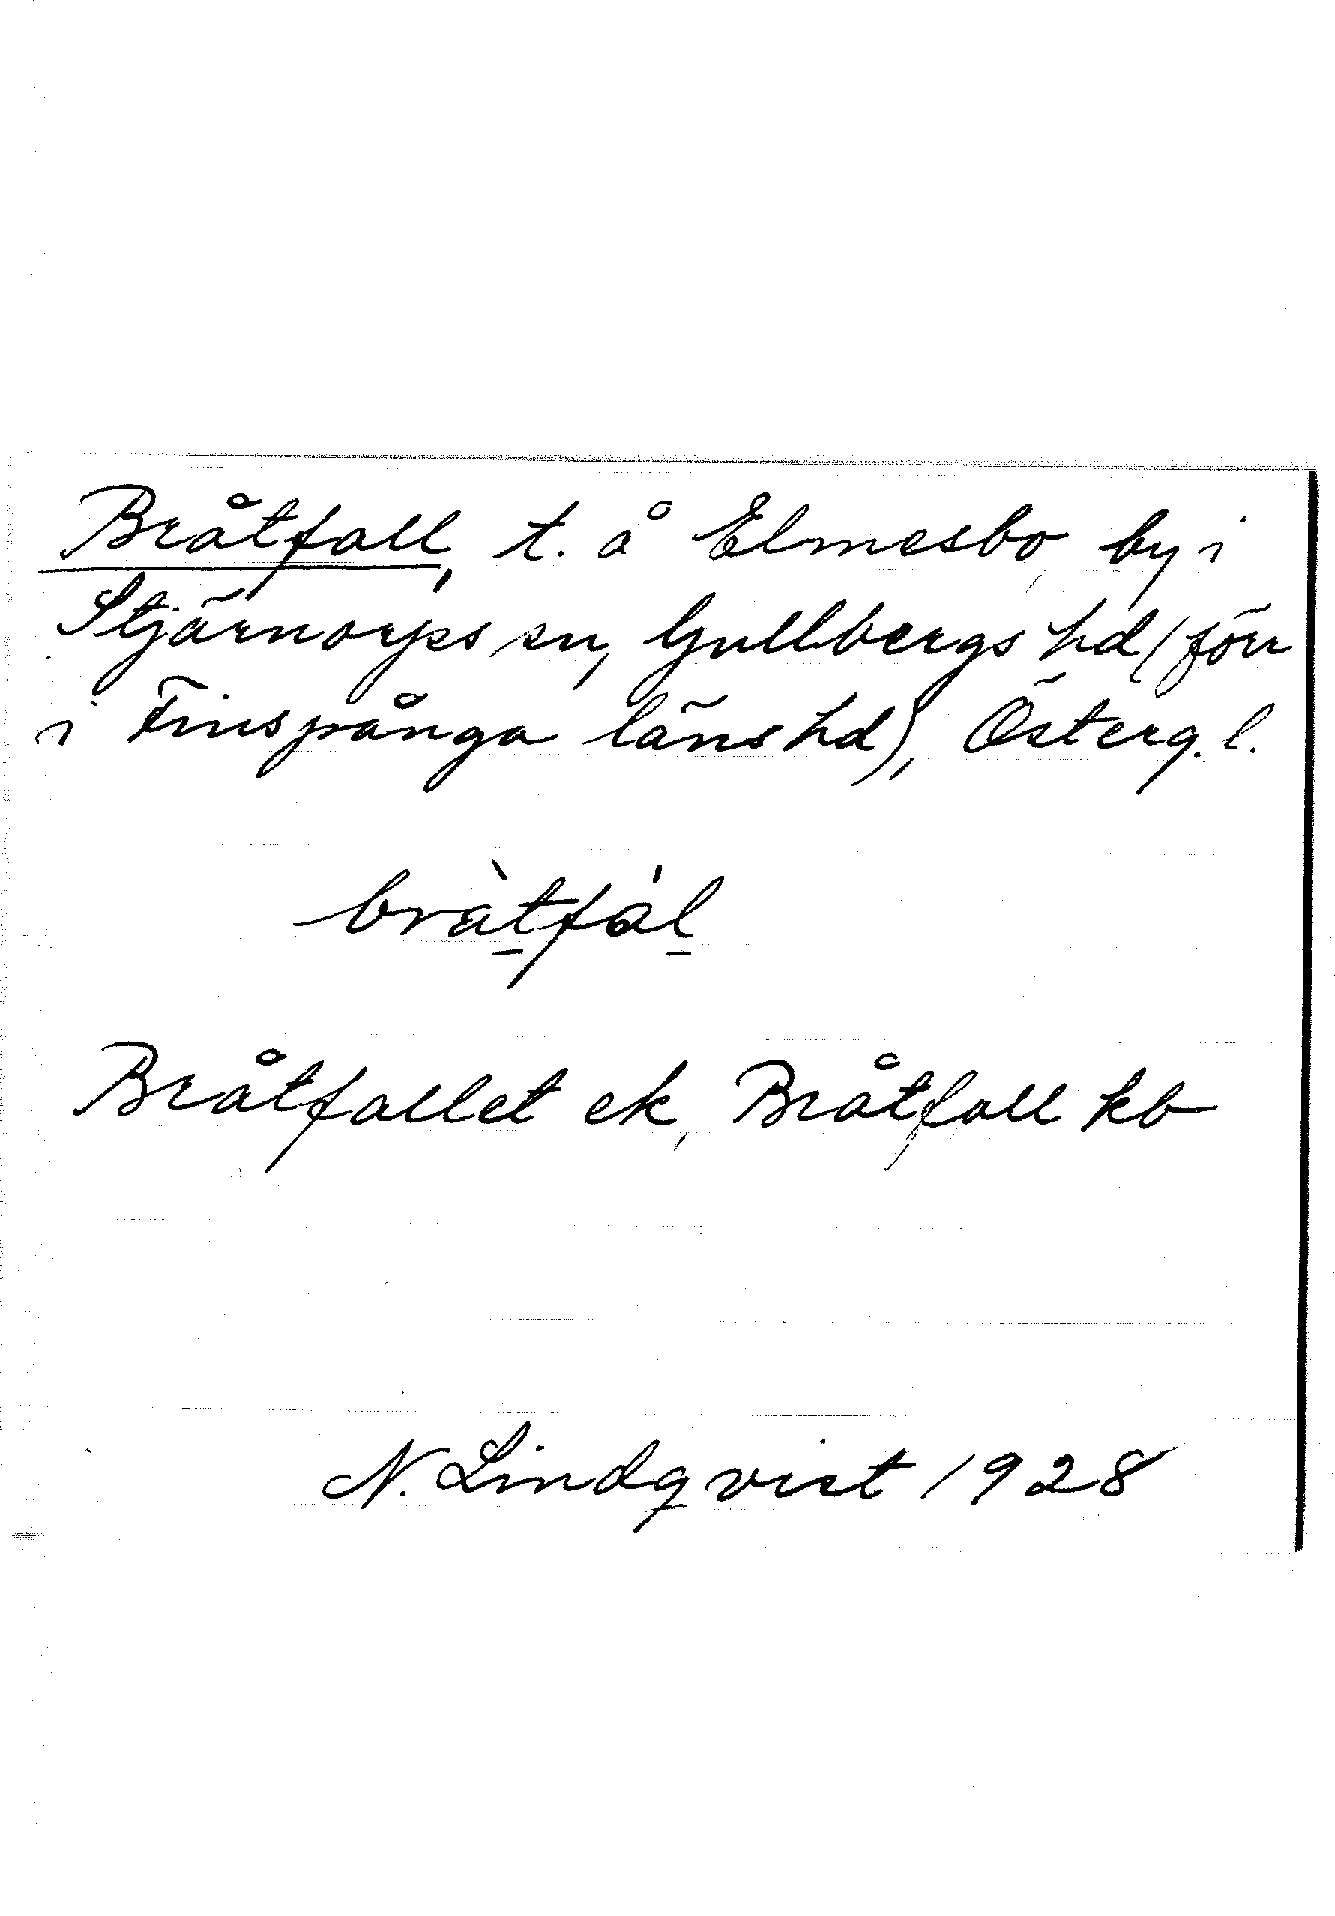 Bråtfall, t. å Elmesbo, by i
Stjärnorps sn, Gullbergs hd (förr
i Finspånga läns hd), Österg. l.
bràtfál
Bråtfallet ek, Bråtfall kb
N. Lindqvist 1928